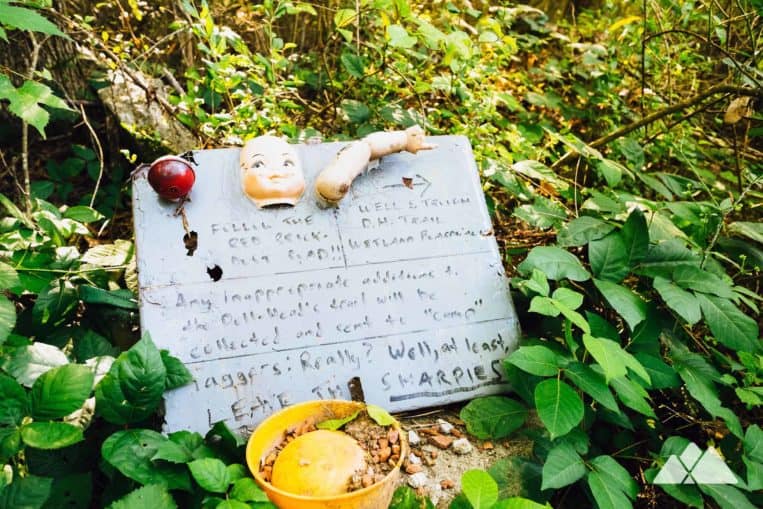 FOLLOW THE
RED BRICK
ROAD!!
WELL & TRUCK
D.H. TRAIL
WETLAND
Any Inappropriate additions to
the Doll-Head's trail will be
collected and sent to "camp"
Taggers: Really? Well, at least
LEAVE THE SHARPIES